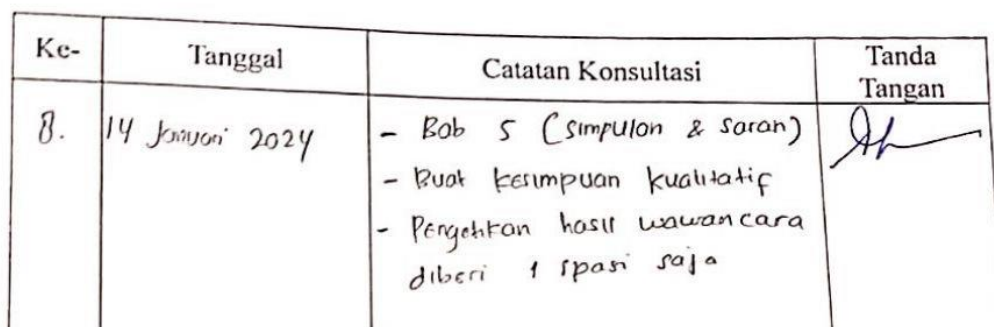 Ke-
Tanggal
Catatan Konsultasi
Tanda
Tangan
8.
14 Januari 2024
- Bab 5 (simpulan & saran)
- Buat kesimpuan kualitatif
- Pengetikan hasil wawancara
diberi 1 spasi saja